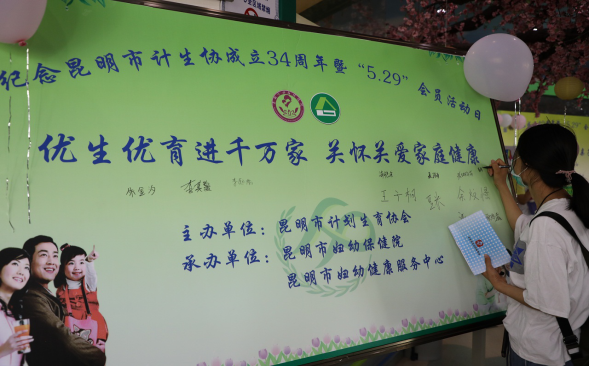 纪念昆明市计生协成立34周年暨“5.29”会员活动日
优生优育进千万家 关怀关爱家庭健康
主办单位：昆明市计划生育协会
承办单位：昆明市妇幼保健院
昆明市妇幼健康服务中心